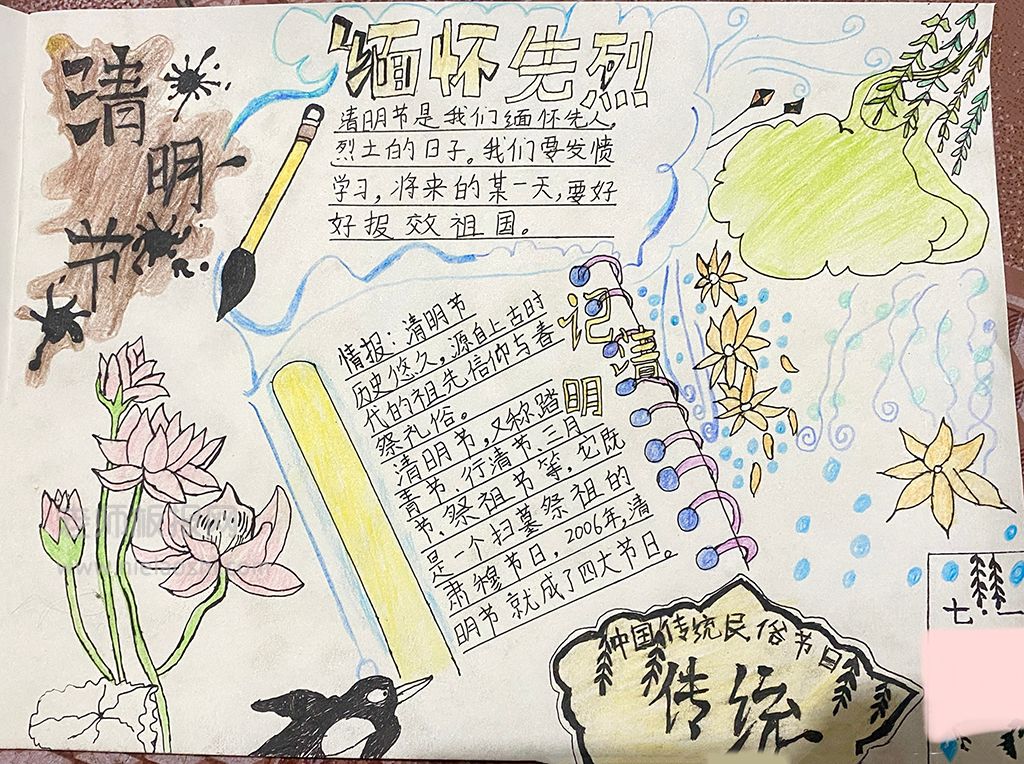 清明节
缅怀先烈
清明节是我们缅怀先人,
烈士的日子。我们要发愤
学习,将来的某一天,要好
好报效祖国。
记清明
情报:清明节
历史悠久,源自上古时
代的祖先信仰与春
祭礼俗。
清明节,又称踏
青节、行清节、三月
节、祭祖节等,它既
是一个扫墓祭祖的
肃穆节日,2006年,清
明节就成了四大节日。
中国传统民俗节日
传统
七.一